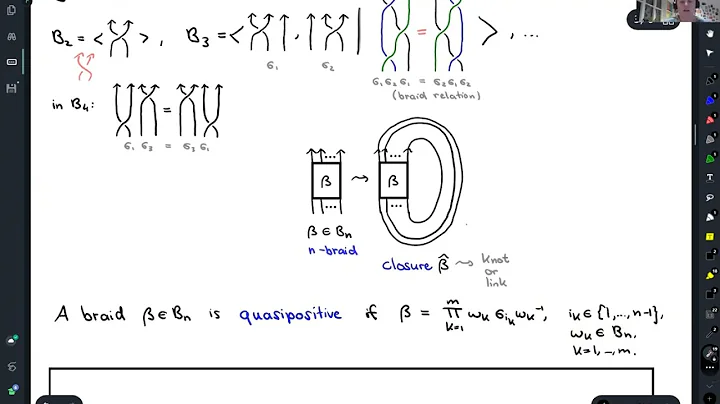 B₂ = < > , B₃ = < , | = > , ...
σ₁ σ₂ σ₁σ₂σ₁ = σ₂σ₁σ₂
(braid relation)
in B₄: =
σ₁ σ₃ = σ₃ σ₁
... ...
β ⇝ β
... ...
β ∈ Bₙ
n-braid
closure β̂ ⇝ knot
or
link
A braid β ∈ Bₙ is quasipositive if β = ∏ₖ₌₁ᵐ ωₖ σᵢₖ ωₖ⁻¹, iₖ ∈ {1,...,n-1},
ωₖ ∈ Bₙ,
k = 1, ..., m.